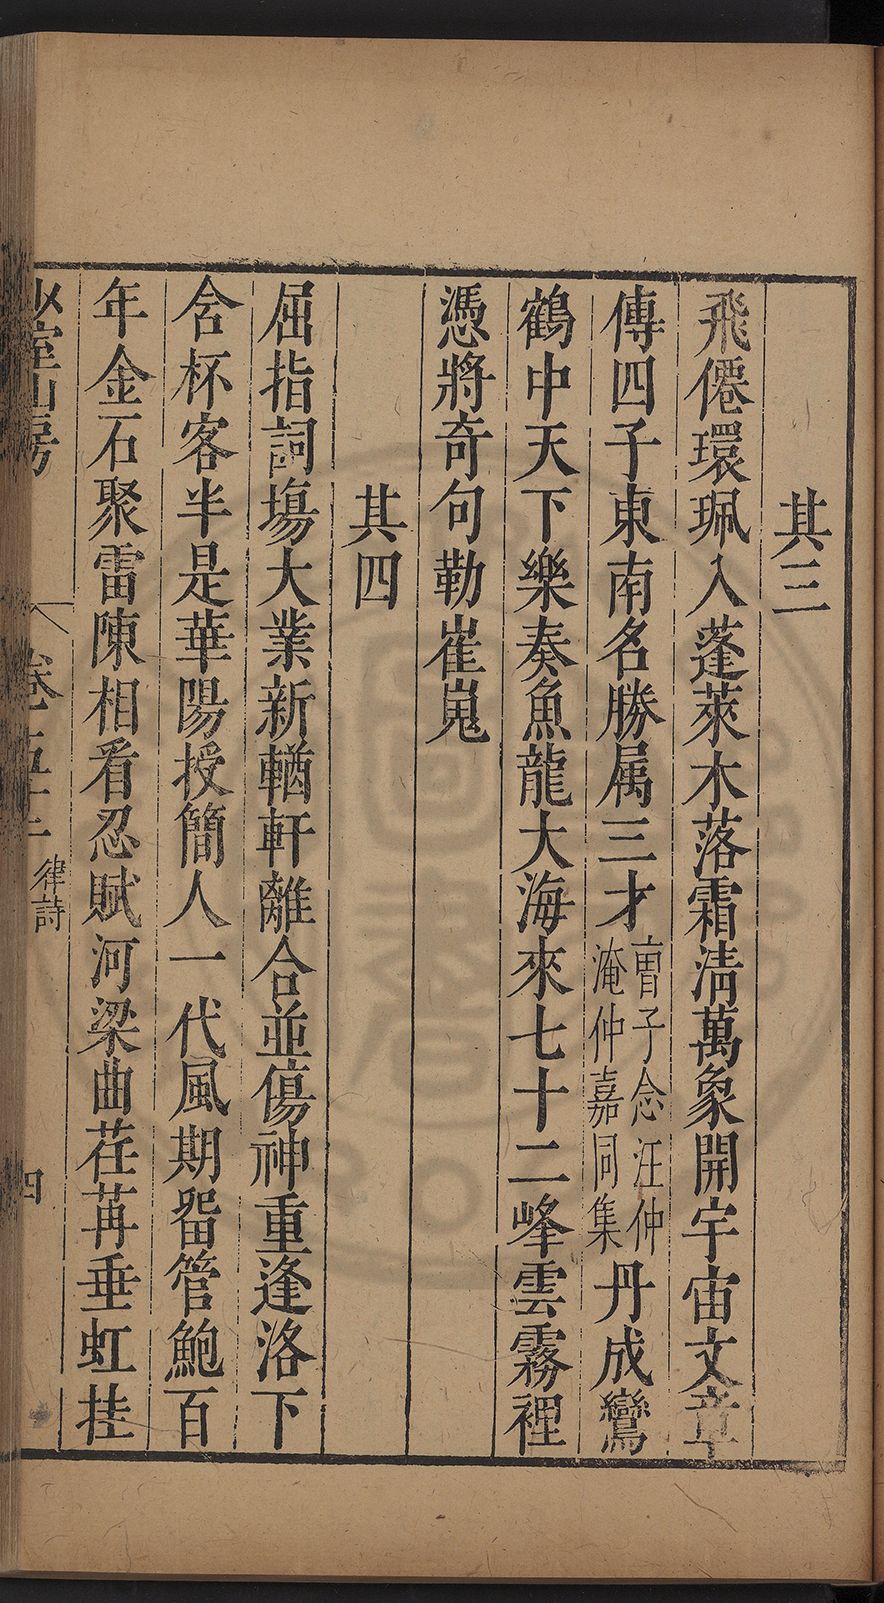 其三
飛僊環珮入蓬萊木落霜清萬象開宇宙文章
傳四子東南名勝属三才曹子念汪仲
淹仲嘉同集丹成鸞
鶴中天下樂奏魚龍大海來七十二峰雲霧裡
憑將奇句勒崔嵬
其四
屈指詞塲大業新輶軒離合並傷神重逢洛下
含杯客半是華陽授簡人一代風期畱管鮑百
年金石聚雷陳相看忍賦河梁曲荏苒垂虹挂
室山房
卷五十二
律詩
四